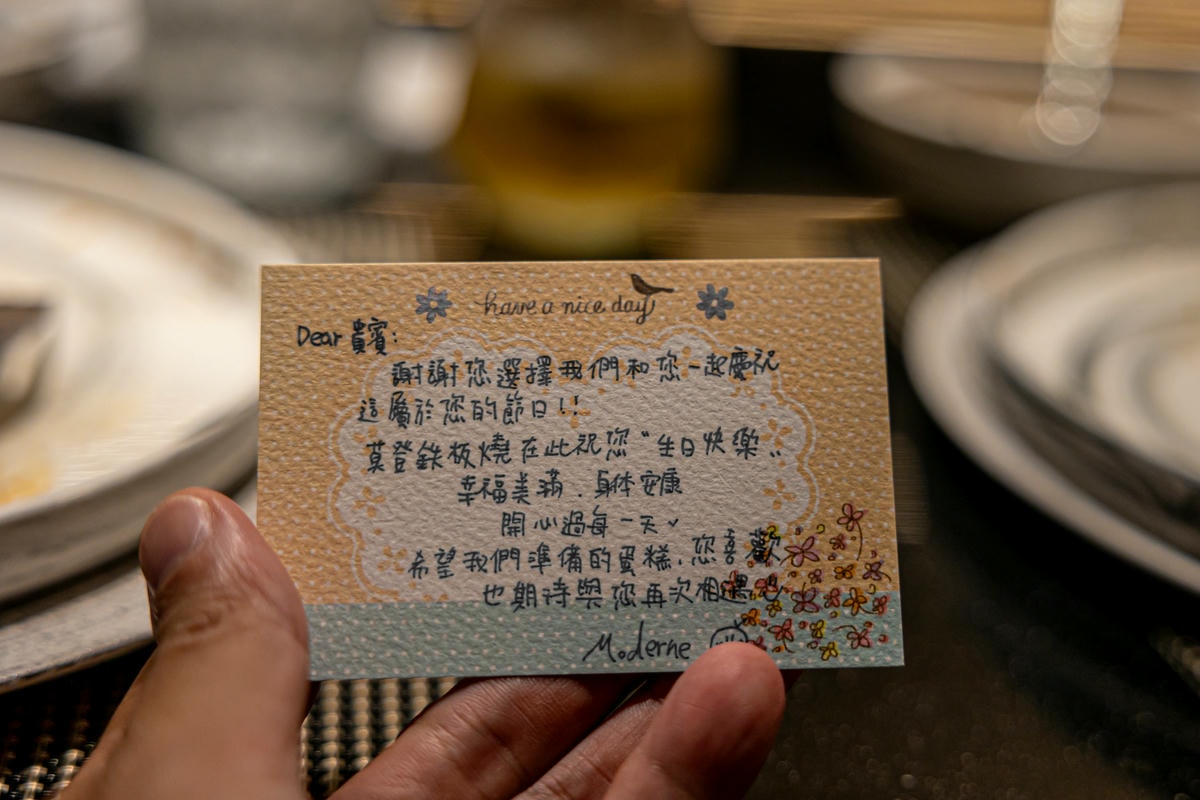 have a nice day
Dear 貴賓:
謝謝您選擇我們和您一起慶祝
這屬於您的節日!!
莫登鉄板燒在此祝您"生日快樂"
幸福美滿.身体安康
開心過每一天
希望我們準備的蛋糕.您喜歡
也期待與您再次相遇
Moderne